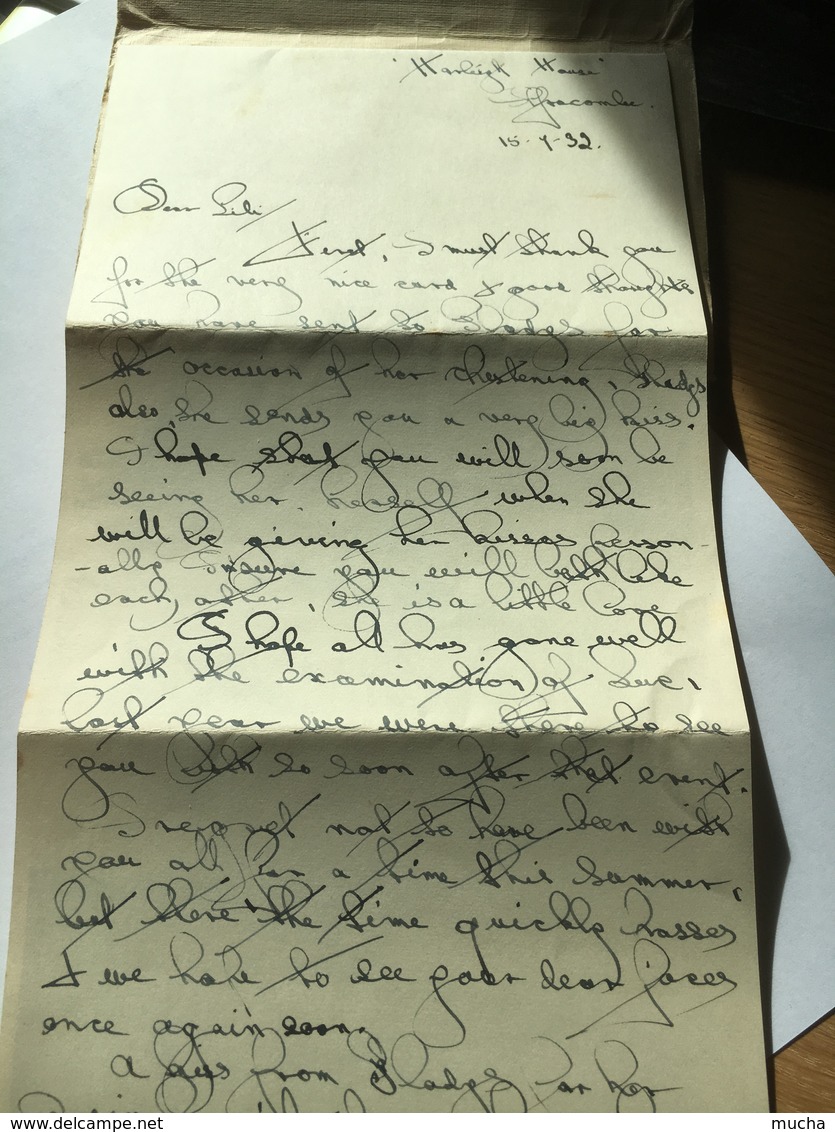 "Harleigh House"
Ilfracombe.
15-7-32.
Dear Lili,
First, I must thank you
for the very nice card & good thoughts
you have sent to Gladys for
the occasion of her christening, Gladys
also, she sends you a very big kiss.
I hope that you will soon be
seeing her herself when she
will be giving her kisses person-
-ally I'm sure you will both like
each other, she is a little love
I hope all has gone well
with the examination of Luc,
last year we were there to see
you both so soon after that event.
I regret not to have been with
you all for a time this summer,
but there the time quickly passes
& we hope to see your dear faces
once again soon,
A kiss from Gladys for her
mucha